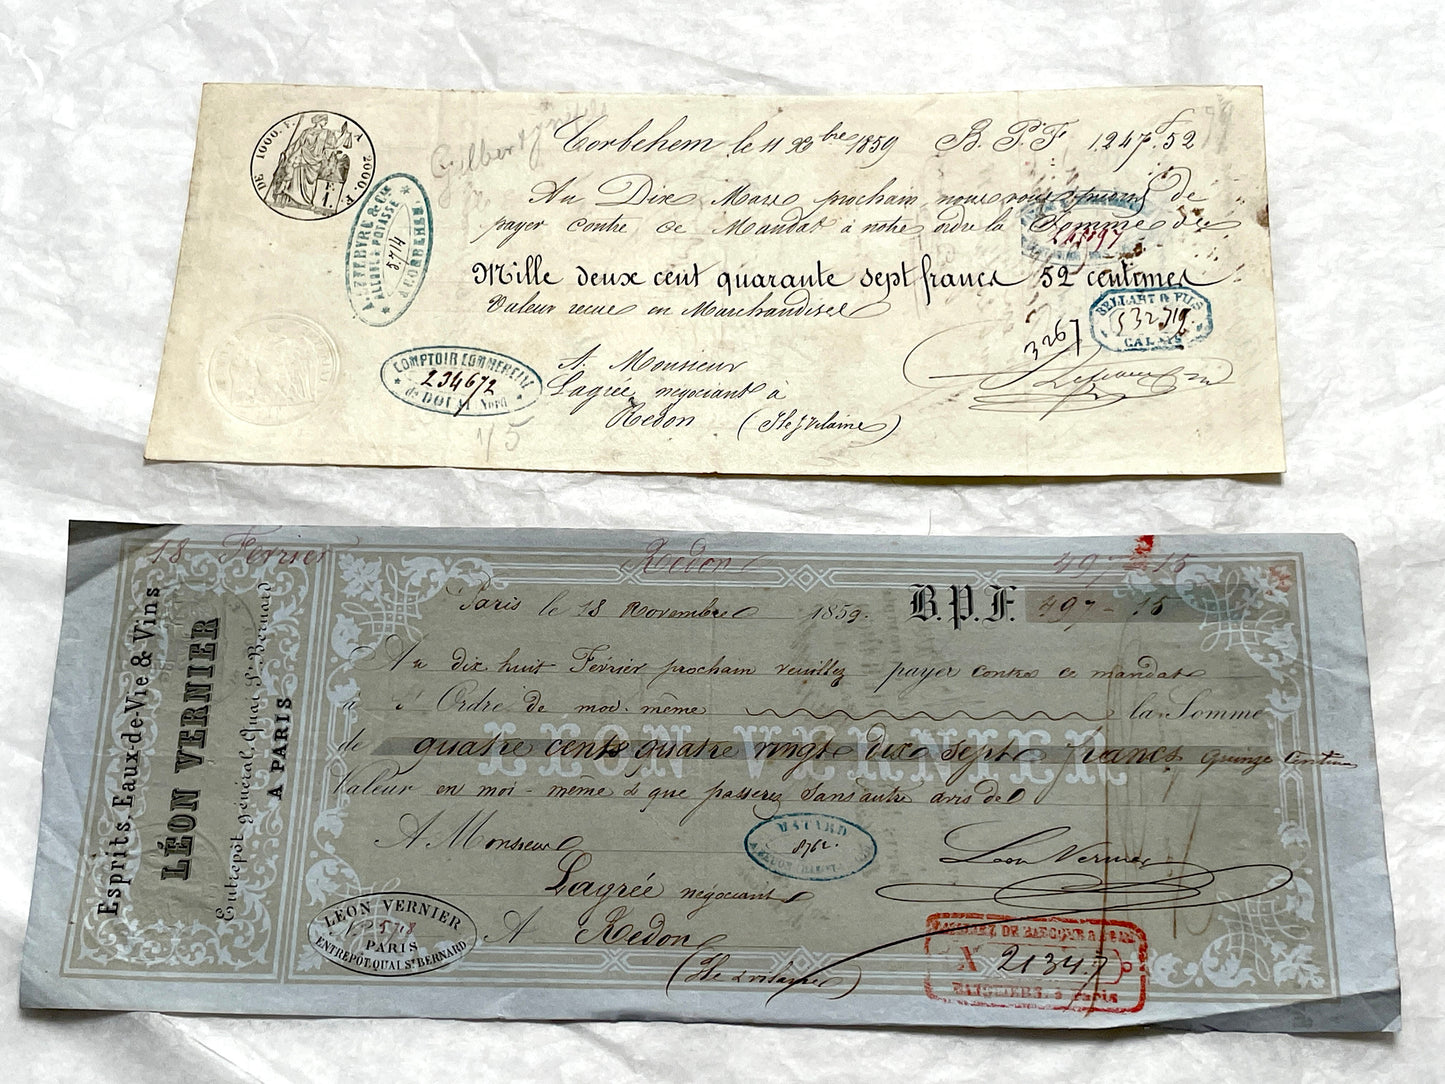 DE 1000. F. A 2000. F.
F. 1.
Corbehem le 11 Xbre 1859 B. P. F 1247f.52
Au Dix Mars prochain nous vous prions de
payer contre ce Mandat à notre ordre la Somme de
Mille deux cent quarante sept francs 52 centimes
Valeur reçue en Marchandises
A Monsieur
Lagrée négociant à
Redon (Ile & vilaine)
LEFEBVRE & Cie
ALCOOLS POTASSE
5.714
CORBEHEM
COMPTOIR COMMERCIAL
234672
de DOUAI Nord
15
3267
BELLART & FILS
CALAIS
18 Février Redon 497 15
Esprits, Eaux-de-Vie & Vins
LÉON VERNIER
Entrepôt général, Quai St. Bernard
A PARIS
Paris le 18 Novembre 1859. B.P.F. 497 - 15
Au dix huit Février prochain veuillez payer contre ce mandat
à l'Ordre de moi-même la Somme
de quatre cents quatre vingt dix sept francs quinze Centimes
LÉON VERNIER
Valeur en moi-même & que passerez Sans autre avis de
A Monsieur
Lagrée négociant
A Redon
(Ile & vilaine)
MATARD
8762
Léon Vernier
LÉON VERNIER
PARIS
ENTREPOT. QUAI St BERNARD
X 21347
BANQUIERS, à Paris